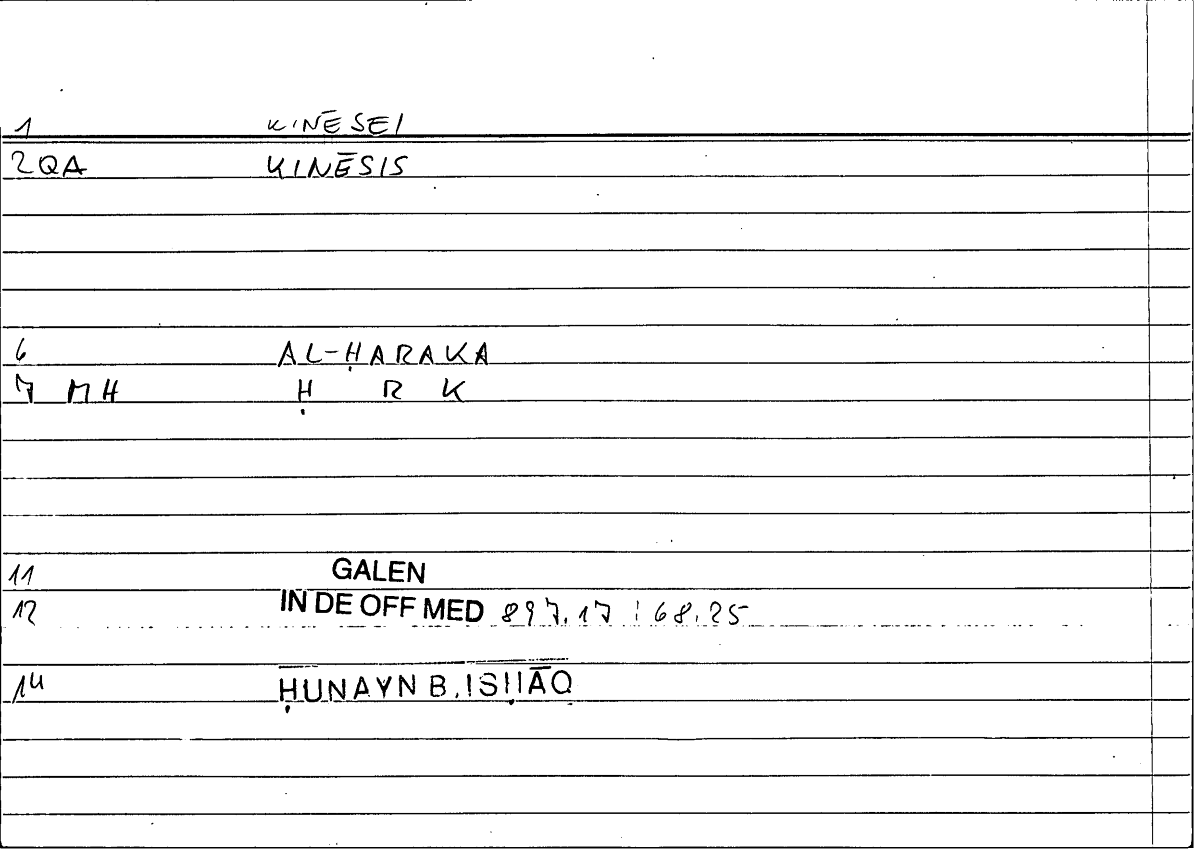 1 KINĒSEI
2QA KINĒSIS
6 AL-ḤARAKA
7 MH Ḥ R K
11 GALEN
12 IN DE OFF MED 897.17 : 68.25
14 ḤUNAYN B. ISḤĀQ